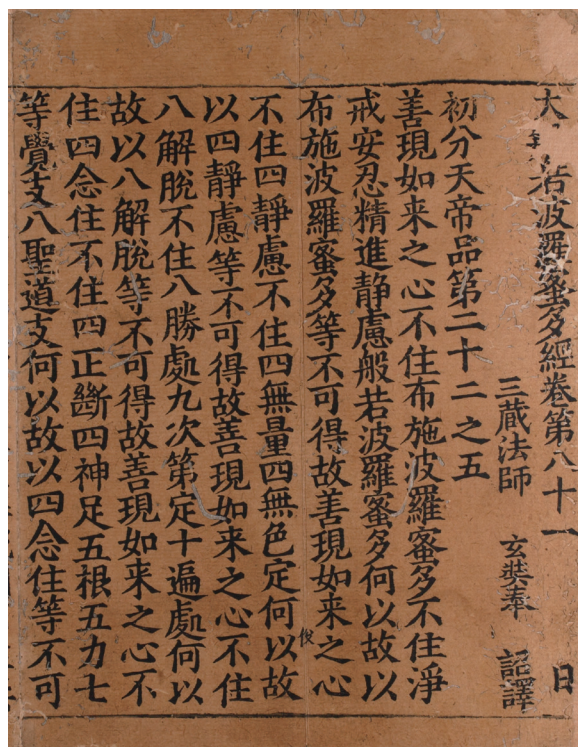 大般若波羅蜜多經卷第八十一 日
三蔵法師 玄奘奉 詔譯
初分天帝品第二十二之五
善現如来之心不住布施波羅蜜多不住淨
戒安忍精進静慮般若波羅蜜多何以故以
布施波羅蜜多等不可得故善現如来之心
俊
不住四静慮不住四無量四無色定何以故
以四静慮等不可得故善現如来之心不住
八解脫不住八勝處九次第定十遍處何以
故以八解脫等不可得故善現如来之心不
住四念住不住四正斷四神足五根五力七
等覺支八聖道支何以故以四念住等不可